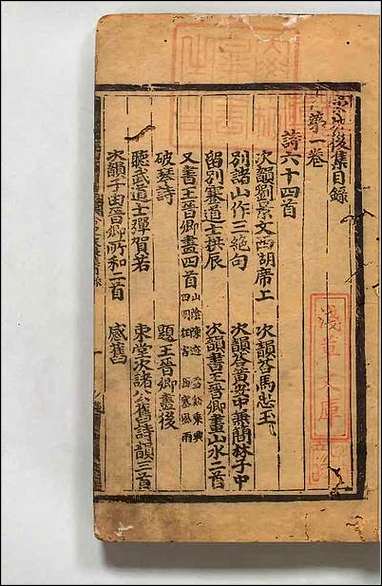 後集目録
第一卷
詩六十四首
次韻劉景文西湖席上 次韻答馬忠玉
別諸山作三絶句 次韻答黃安中兼簡林子中
留別蹇道士拱辰 次韻書王晉卿畫山水二首
又書王晉卿畫四首 山陰陳迹 雪谿乘興
四明狂客 西塞風雨
破琴詩 題王晉卿畫後
聽武道士彈賀若 東堂次諸公舊詩韻三首
次韻子由晉卿所和二首 感舊
淺草文庫